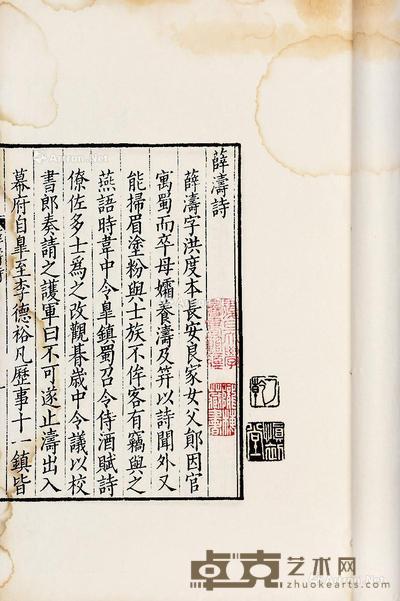 薛濤詩
薛濤字洪度本長安良家女父鄖因官
寓蜀而卒母孀養濤及笄以詩聞外又
能掃眉塗粉與士族不侔客有竊與之
燕語時韋中令臯鎮蜀召令侍酒賦詩
僚佐多士爲之改觀朞歲中令議以校
書郎奏請之護軍曰不可遂止濤出入
幕府自臯至李德裕凡歷事十一鎮皆
卓克艺术网
zhuokearts.com